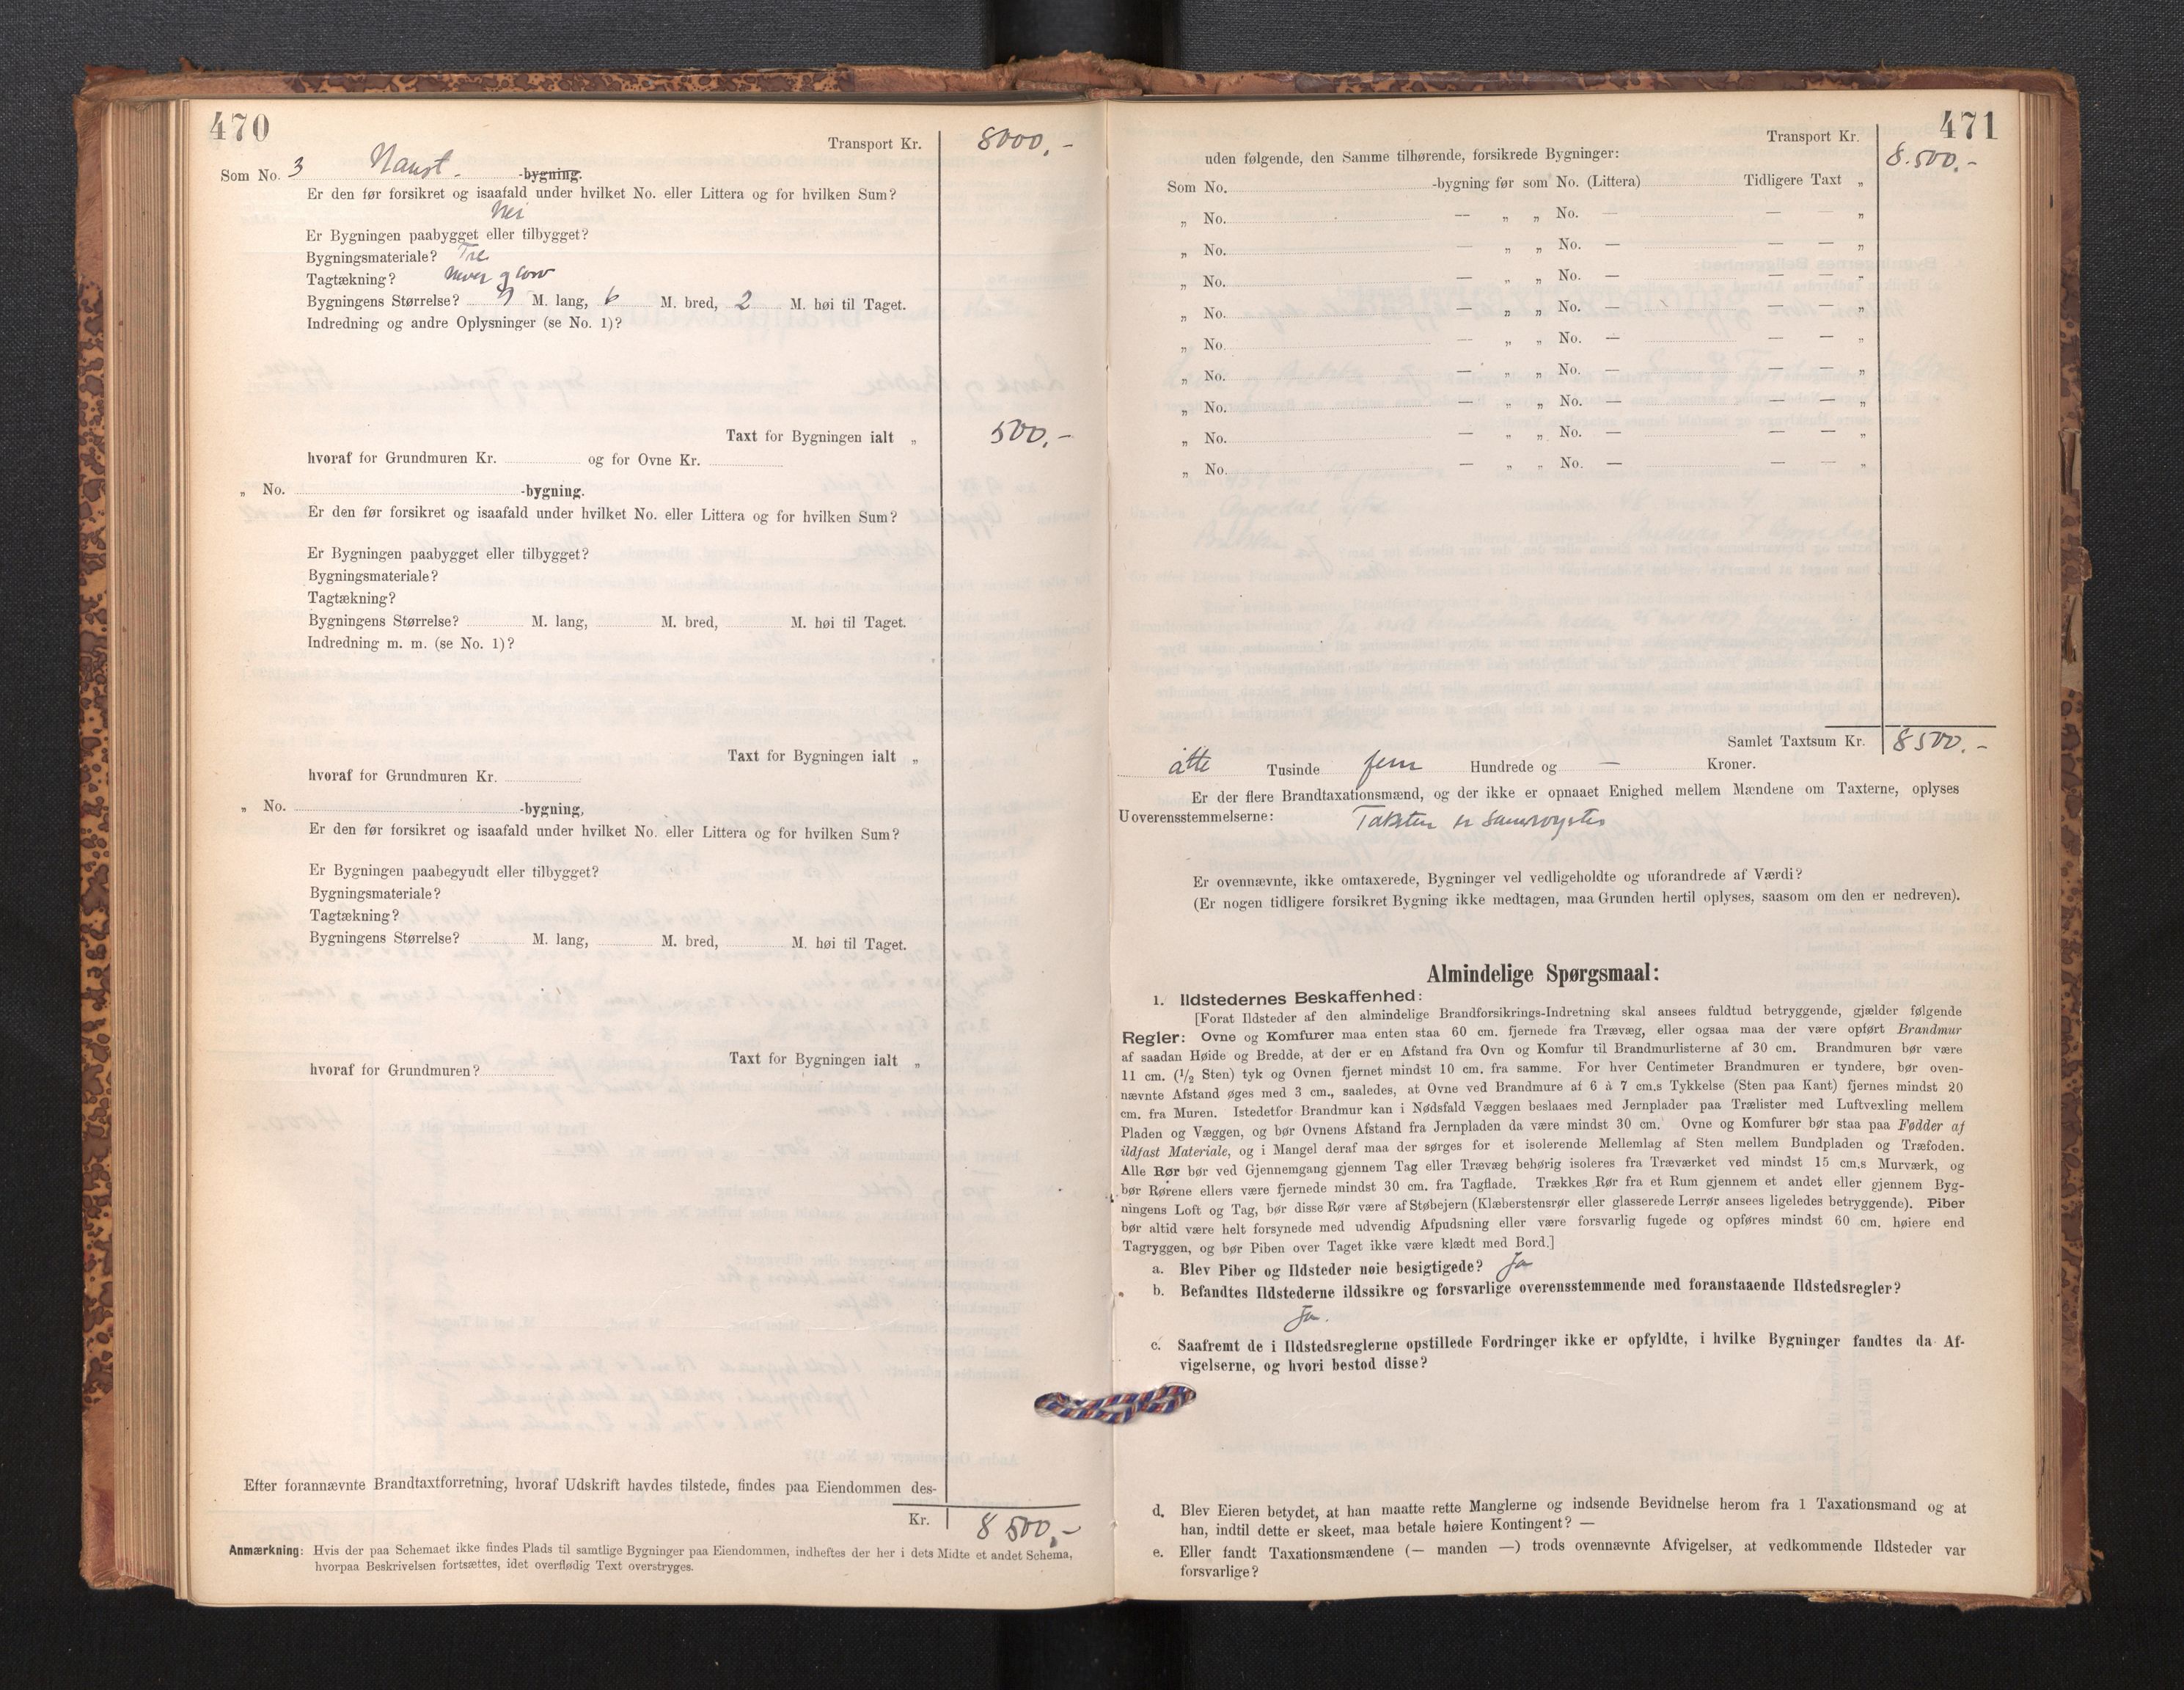 470
Transport Kr. 8000,-
Som No. 3 Naust -bygning.
Er den før forsikret og isaafald under hvilket No. eller Littera og for hvilken Sum?
Nei
Er Bygningen paabygget eller tilbygget?
Bygningsmateriale? Tre
Tagtækning? Never og torv
Bygningens Størrelse? 9 M. lang, 6 M. bred, 2 M. høi til Taget.
Indredning og andre Oplysninger (se No. 1)?
Taxt for Bygningen ialt „ 500,-
hvoraf for Grundmuren Kr. og for Ovne Kr.
„ No. -bygning.
Er den før forsikret og isaafald under hvilket No. eller Littera og for hvilken Sum?
Er Bygningen paabygget eller tilbygget?
Bygningsmateriale?
Tagtækning?
Bygningens Størrelse? M. lang, M. bred, M. høi til Taget.
Indredning m. m. (se No. 1)?
Taxt for Bygningen ialt „
hvoraf for Grundmuren Kr.
„ No. -bygning,
Er den før forsikret og isaafald under hvilket No. eller Littera og for hvilken Sum?
Er Bygningen paabegyudt eller tilbygget?
Bygningsmateriale?
Tagtækning?
Bygningens Størrelse? M. lang, M. bred, M. høi til Taget.
Taxt for Bygningen ialt „
hvoraf for Grundmuren?
Efter forannævnte Brandtaxtforretning, hvoraf Udskrift havdes tilstede, findes paa Eiendommen des-
Kr. 8500,-
Anmærkning: Hvis der paa Schemaet ikke findes Plads til samtlige Bygninger paa Eiendommen, indheftes der her i dets Midte et andet Schema,
hvorpaa Beskrivelsen fortsættes, idet overflødig Text overstryges.
471
Transport Kr. 8.500,-
uden følgende, den Samme tilhørende, forsikrede Bygninger:
Som No. -bygning før som No. (Littera) Tidligere Taxt „
„ No. — „ „ No. — — — „
„ No. — „ „ No. — — — „
„ No. — „ „ No. — — — „
„ No. — „ „ No. — — — „
„ No. — „ „ No. — — — „
„ No. — „ „ No. — — — „
„ No. — „ „ No. — — — „
„ No. — „ „ No. — — — „
„ No. — „ „ No. — — — „
Samlet Taxtsum Kr. 8500.-
åtte Tusinde fem Hundrede og — Kroner.
Er der flere Brandtaxationsmænd, og der ikke er opnaaet Enighed mellem Mændene om Taxterne, oplyses
Uoverensstemmelserne: Taksten er samrøystes
Er ovennævnte, ikke omtaxerede, Bygninger vel vedligeholdte og uforandrede af Værdi?
(Er nogen tidligere forsikret Bygning ikke medtagen, maa Grunden hertil oplyses, saasom om den er nedreven).
Almindelige Spørgsmaal:
1. Ildstedernes Beskaffenhed:
[Forat Ildsteder af den almindelige Brandforsikrings-Indretning skal ansees fuldtud betryggende, gjælder følgende
Regler: Ovne og Komfurer maa enten staa 60 cm. fjernede fra Trævæg, eller ogsaa maa der være opført Brandmur
af saadan Høide og Bredde, at der er en Afstand fra Ovn og Komfur til Brandmurlisterne af 30 cm. Brandmuren bør være
11 cm. (1/2 Sten) tyk og Ovnen fjernet mindst 10 cm. fra samme. For hver Centimeter Brandmuren er tyndere, bør oven-
nævnte Afstand øges med 3 cm., saaledes, at Ovne ved Brandmure af 6 à 7 cm.s Tykkelse (Sten paa Kant) fjernes mindst 20
cm. fra Muren. Istedetfor Brandmur kan i Nødsfald Væggen beslaaes med Jernplader paa Trælister med Luftvexling mellem
Pladen og Væggen, og bør Ovnens Afstand fra Jernpladen da være mindst 30 cm. Ovne og Komfurer bør staa paa Fødder af
ildfast Materiale, og i Mangel deraf maa der sørges for et isolerende Mellemlag af Sten mellem Bundpladen og Træfoden.
Alle Rør bør ved Gjennemgang gjennem Tag eller Trævæg behørig isoleres fra Træværket ved mindst 15 cm.s Murværk, og
bør Rørene ellers være fjernede mindst 30 cm. fra Tagflade. Trækkes Rør fra et Rum gjennem et andet eller gjennem Byg-
ningens Loft og Tag, bør disse Rør være af Støbejern (Klæberstensrør eller glasserede Lerrør ansees ligeledes betryggende). Piber
bør altid være helt forsynede med udvendig Afpudsning eller være forsvarlig fugede og opføres mindst 60 cm. høiere end
Tagryggen, og bør Piben over Taget ikke være klædt med Bord.]
a. Blev Piber og Ildsteder nøie besigtigede? Ja
b. Befandtes Ildstederne ildssikre og forsvarlige overensstemmende med foranstaaende Ildstedsregler?
Ja.
c. Saafremt de i Ildstedsreglerne opstillede Fordringer ikke er opfyldte, i hvilke Bygninger fandtes da Af-
vigelserne, og hvori bestod disse?
d. Blev Eieren betydet, at han maatte rette Manglerne og indsende Bevidnelse herom fra 1 Taxationsmand og at
han, indtil dette er skeet, maa betale høiere Kontingent? —
e. Eller fandt Taxationsmændene (— manden —) trods ovennævnte Afvigelser, at vedkommende Ildsteder var
forsvarlige?